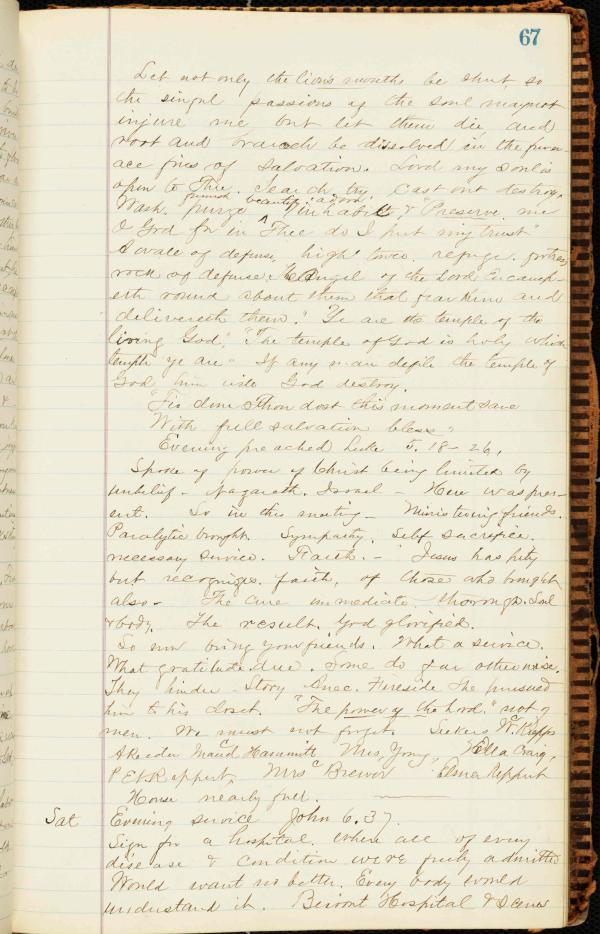 67
Let not only the lions mouths be shut, so
the sinful passions of the soul may not
injure me but let them die and
root and branch be dissolved in the furn-
ace fires of Salvation. Lord my soul is
open to Thee. Search, try, cast out destroy.
furnish beautify adorn
Wash. purge inhabit & "Preserve me
O God for in Thee do I put my trust"
A of defense, high tower. refuge. fortress
rock of defense. The Angel of the Lord encamp-
eth round about them that fear him and
delivereth them." Ye are the temple of the
living God," "The temple of God is holy which
temple ye are" If any man defile the temple of
God, him will God destroy.
Tis done Thou dost this moment save
With full salvation bless"
Evening preached Luke 5. 18-26,
Spoke of power of Christ being limited by
unbelief - Nazareth. Israel - Here was pres-
ent. So in this meeting - Ministering friends.
Paralytic brought. Sympathy. Self sacrifice.
necessary service. Faith. - Jesus has pity
but recognizes faith, of those who brought
also - The cure immediate thorough. Soul
& body. The result. God glorified.
So now bring your friends. What a service.
What gratitude due. Some do far otherwise.
They hinder. Story Fireside She pursued
him to his closet. "The power of the Lord." not of
men. We must not forget. Seekers
Maud Hammitt Mrs. Young, Ella Craig,
Reppert, Mrs Brevor Elmer Reppert
House nearly full.
Sat Evening service John 6.37.
Sign for a hospital, where all of every
disease & condition were freely admitted
Would want no better. Every body would
understand it. Hospital &